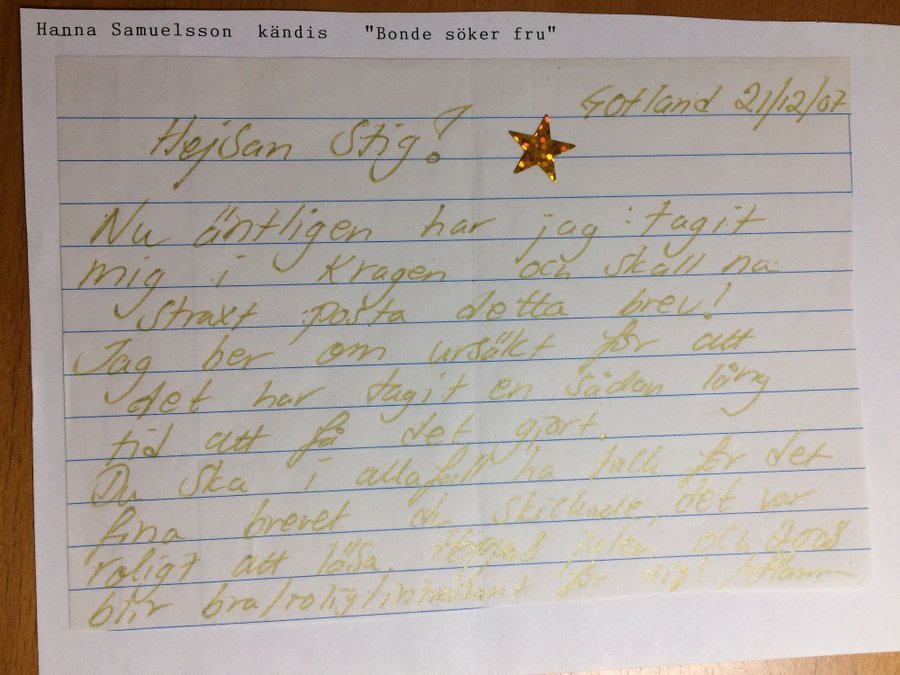 Hanna Samuelsson kändis "Bonde söker fru"
Gotland 21/12/07
Hejsan Stig!
Nu äntligen har jag tagit
mig i Kragen och skall nu
straxt posta detta brev!
Jag ber om ursäkt för att
det har tagit en sådan lång
tid att få det gjort.
Du ska i allafall ha tack för det
fina brevet du skickade, det var
roligt att läsa. Hoppas julen och 2008
blir bra/rolig/intressant för dig! /Hanna